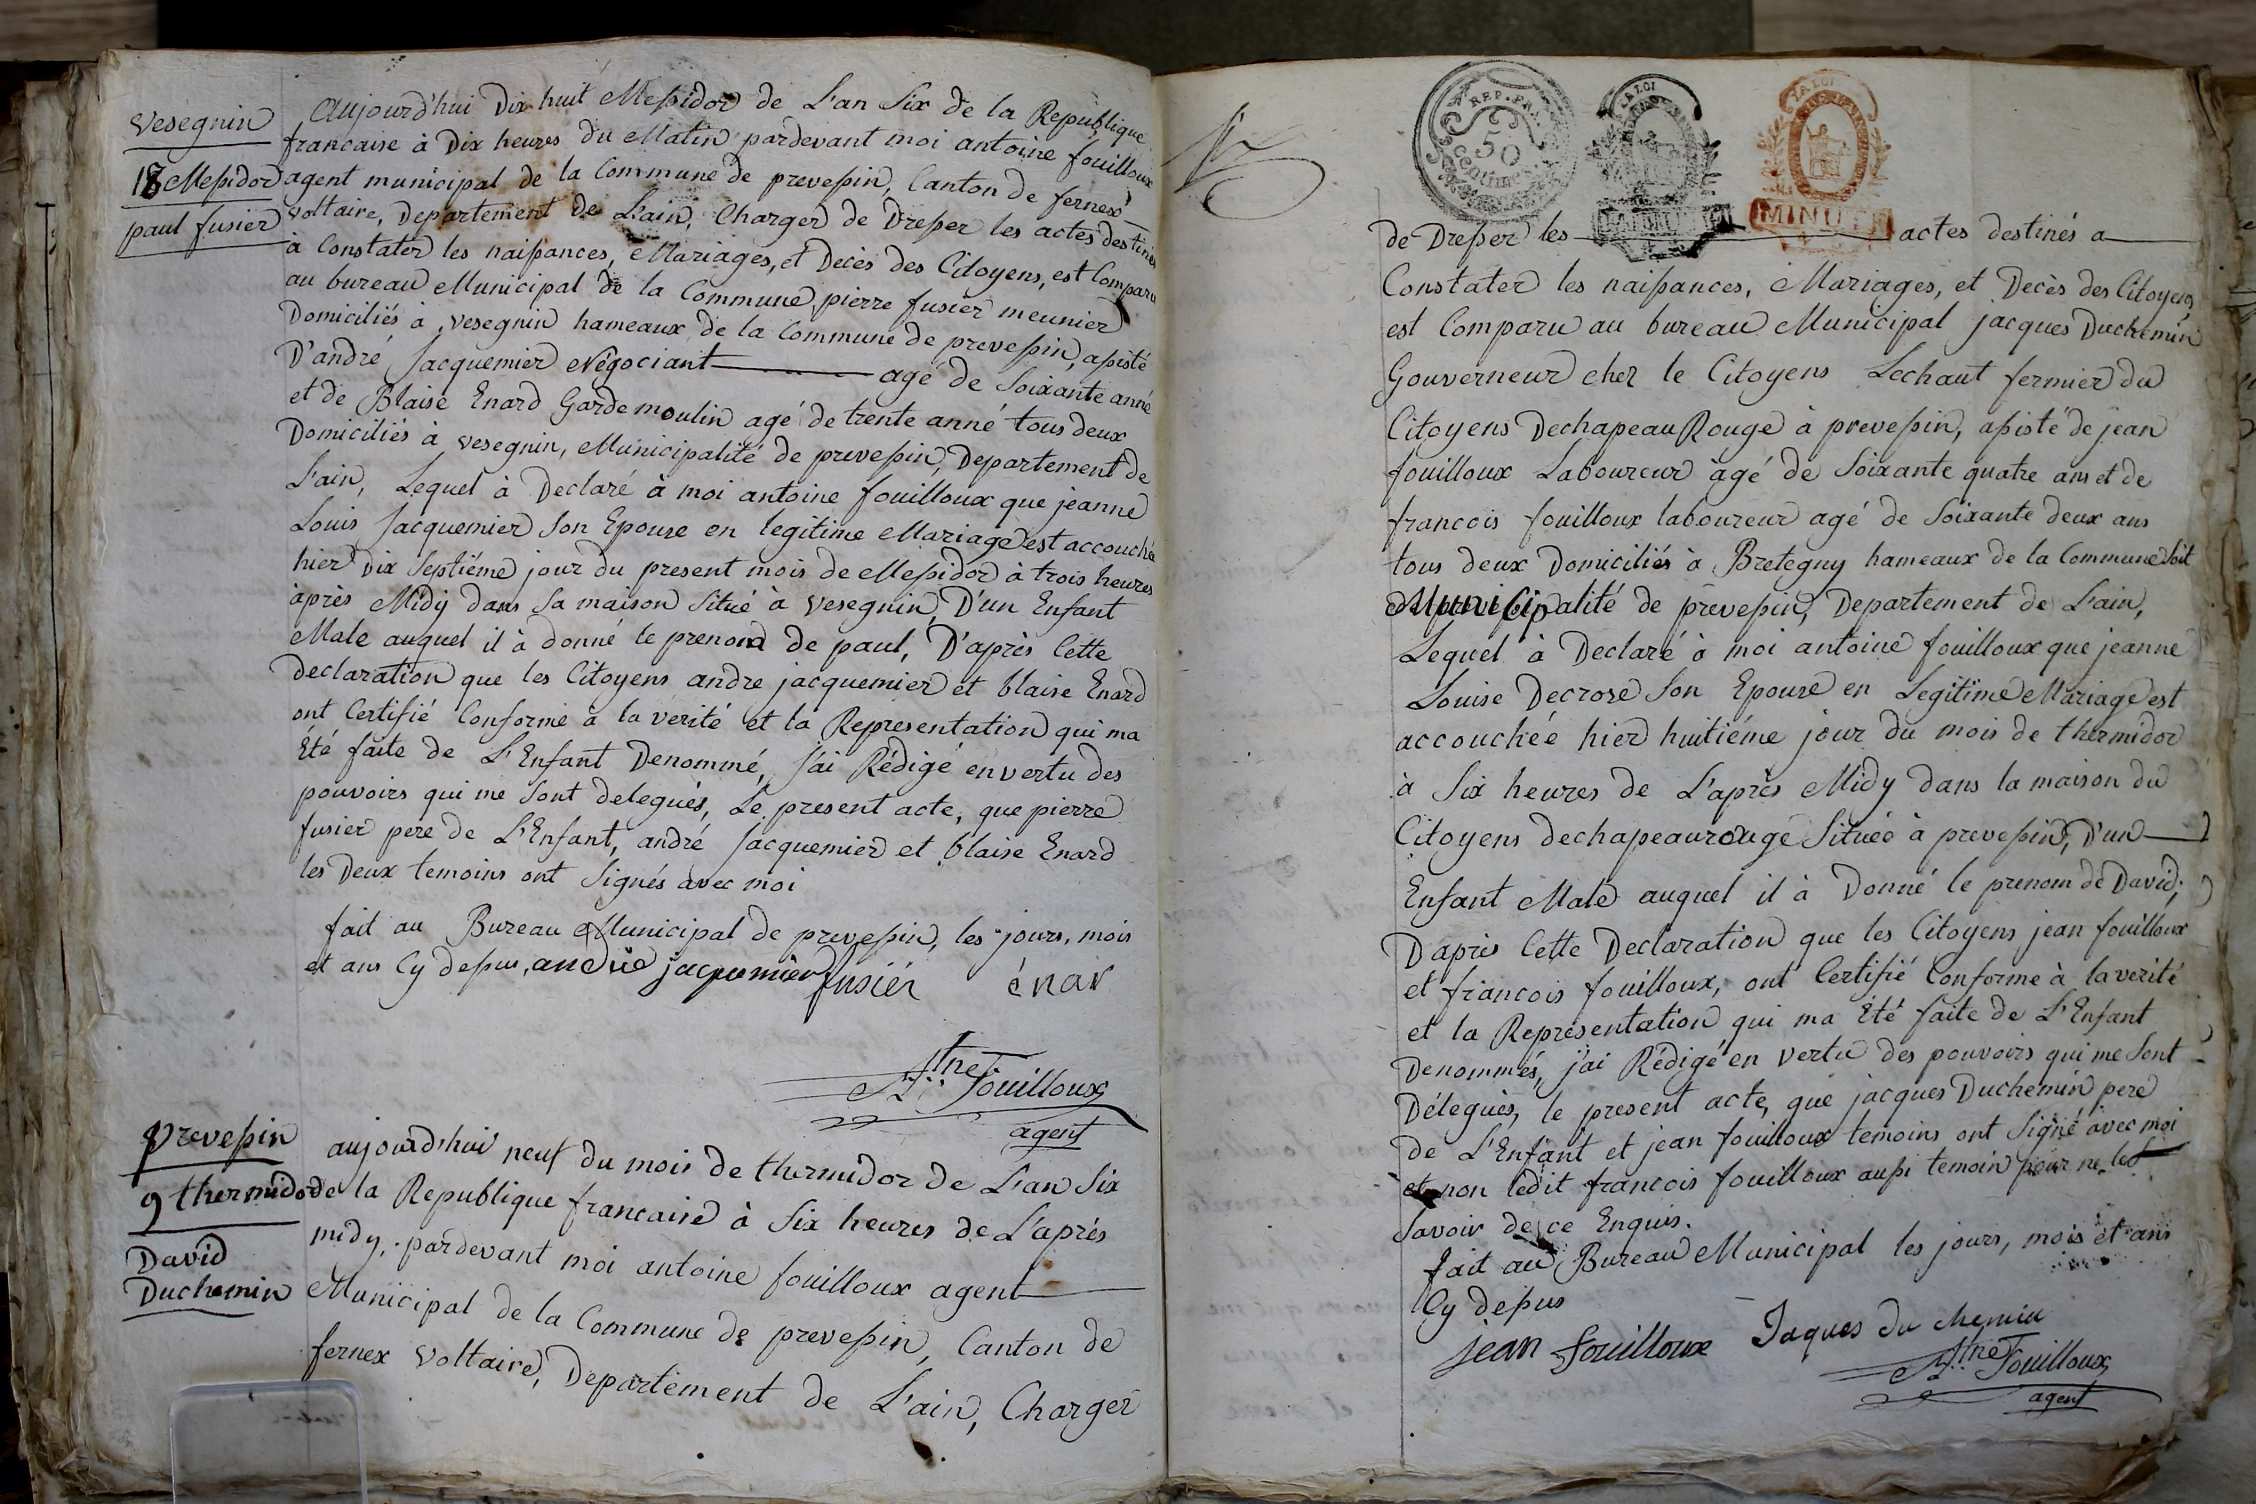 Vesegnin
18 Messidor
paul fusier
Aujourd'hui Dix huit Messidor de L'an Six de la Republique
francaise à Dix heures du Matin pardevant moi antoine fouilloux
agent municipal de la Commune de prevessin, Canton de fernex
voltaire, Departement de L'ain, Charger de Dresser les actes destinés
à Constater les naissances, Mariages, et Decès des Citoyens, est Comparu
au bureau Municipal de la Commune, pierre fusier meunier
Domiciliés à Vesegnin hameaux de la Commune de prevessin, assisté
D'andré Jacquemier Négociant agé de Soixante anné
et de Blaise Enard Garde moulin agé de trente anné tous deux
Domiciliés à vesegnin, Municipalité de prevessin, Departement de
L'ain, Lequel à Declaré à moi antoine fouilloux que jeanne
Louis Jacquemier Son Epouse en legitime Mariage est accouchée
hier Dix Septiéme jour du present mois de Messidor à trois heures
àprès Midy dans Sa maison Situé à Vesegnin, D'un Enfant
Male auquel il à donné le prenom de paul, D'après Cette
declaration que les Citoyens andre jacquemier et blaise Enard
ont Certifié Conforme a la verité et la Representation qui ma
Eté faite de L'Enfant Denommé, J'ai Rédigé en vertu des
pouvoirs qui me Sont delegués, Le present acte, que pierre
fusier pere de L'Enfant, andré Jacquemier et blaise Enard
les Deux temoins ont Signés avec moi
fait au Bureau Municipal de prevessin, les jours, mois
et ans Cy dessus, andrie jaquemier fusiér énar
Atne. Fouilloux
agent
prevessin
9 thermidor
David
Duchemin
aujourd'hui neuf du mois de thermidor de L'an Six
de la Republique francaise à Six heures de L'aprés
midy, pardevant moi antoine fouilloux agent
Municipal de la Commune de prevessin, Canton de
fernex Voltaire, Departement de L'ain, Charger
REP. FRA.
50
Centimes
LA LOI
LA LOI
MINUTE
de Dresser les actes destinés a
Constater les naissances, Mariages, et Decès des Citoyens
est Comparu au bureau Municipal jacques Duchemin
Gouverneur chez le Citoyens Lechaut fermier du
Citoyens Dechapeau Rouge à prevessin, assisté de jean
fouilloux Laboureur àgé de Soixante quatre ans et de
francois fouilloux laboureur agé de Soixante deux ans
tous deux Domiciliés à Bretegny hameaux de la Commune Soit
Municipalité de prevessin, Departement de L'ain,
Lequel à Declaré à moi antoine fouilloux que jeanne
Louise Decrose Son Epouse en Legitime Mariage est
accouchée hier huitiéme jour du mois de thermidor
à Six heures de L'aprés Midy dans la maison du
Citoyens dechapeaurouge Située à prevessin, D'un
Enfant Male auquel il à Donné le prenom de David,
D'aprés Cette Declaration que les Citoyens jean fouilloux
et francois fouilloux, ont Certifié Conforme à la verité
et la Représentation qui ma Eté faite de L'Enfant
Denommés, j'ai Rédigé en vertu des pouvoirs qui me Sont
Délegués, le present acte, que jacques Duchemin pere
de L'Enfant et jean fouilloux temoins ont Signé avec moi
et non ledit francois fouilloux aussi temoin pour ne le
Savoir de ce Enquis.
fait au Bureau Municipal les jours, mois et ans
Cy dessus
jean fouilloux Jaques du chemin
Atne Fouilloux
agent